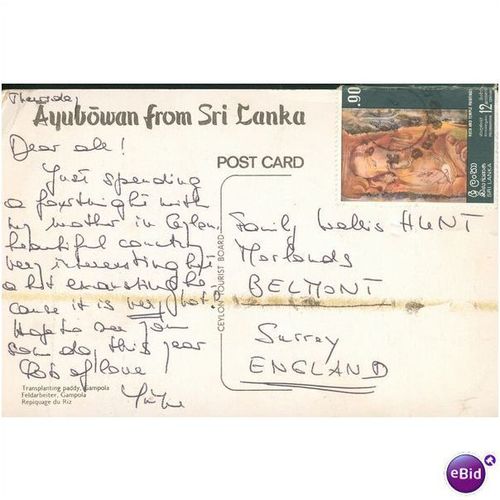 Thursday
Ayubōwan from Sri Lanka
Dear all!
POST CARD
Just spending
a fortnight with
my mother in Ceylon
beautiful country
very interesting but
a bit exhausting be-
cause it is very hot.
Hope to see you
some day this year
Lots of love
Family Wallis HUNT
Morlands
BELMONT
Surrey
ENGLAND
CEYLON TOURIST BOARD
Transplanting paddy, Gampola
Feldarbeiter, Gampola
Repiquage du Riz
.90
12
ශ්‍රී ලංකා
SRI LANKA
eBid